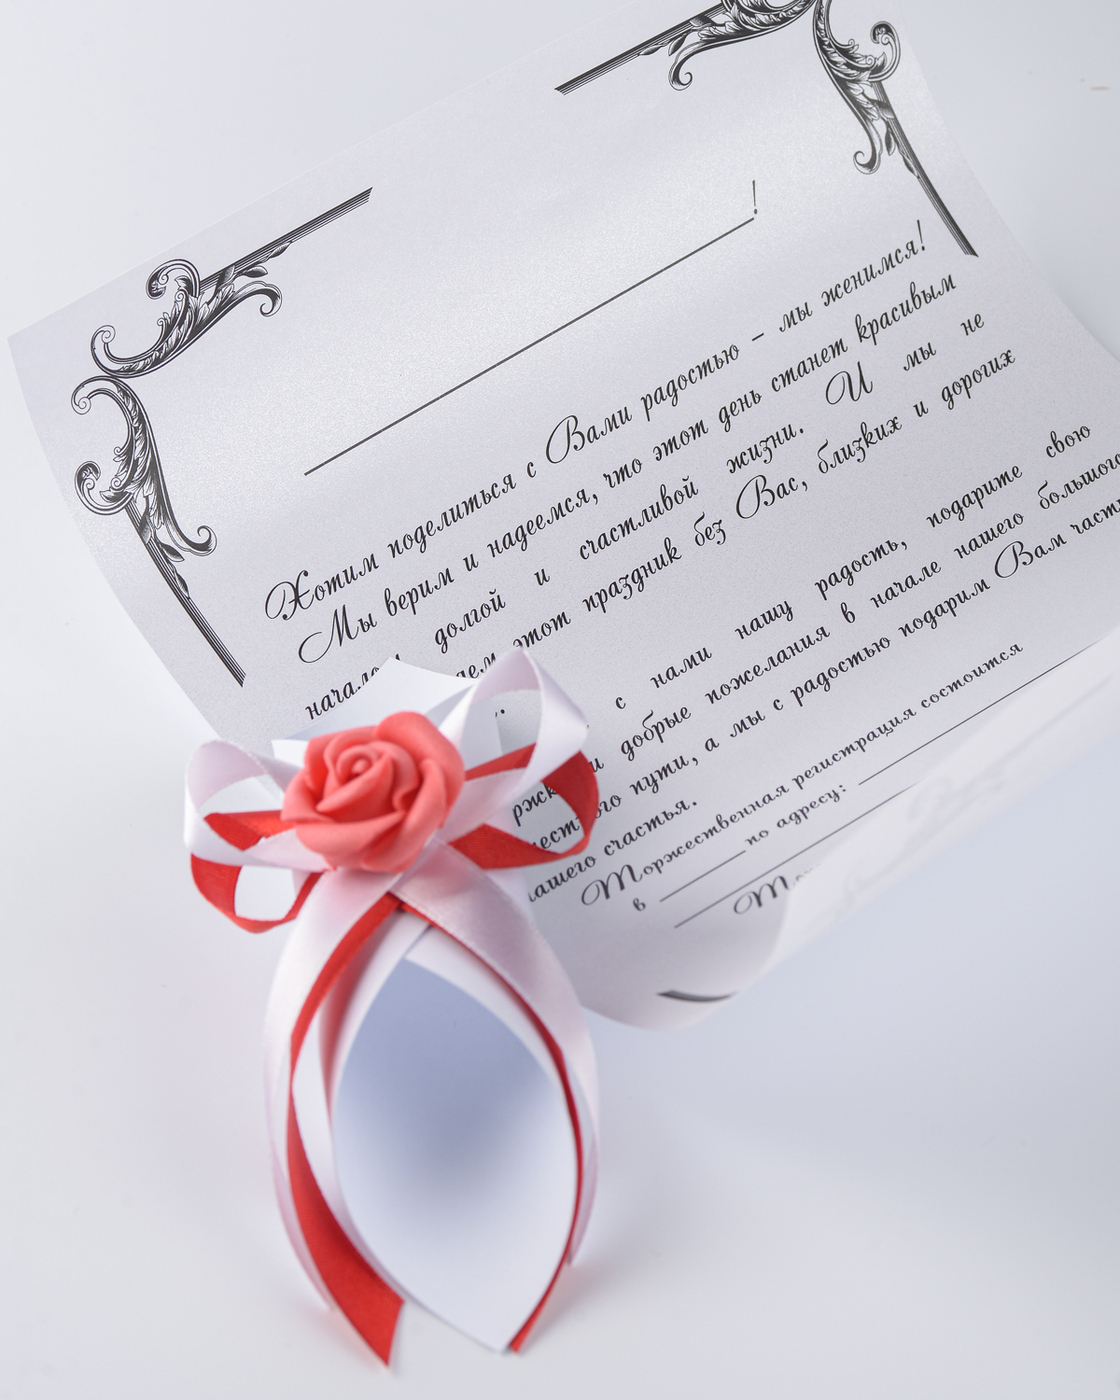 !
Хотим поделиться с Вами радостью – мы женимся!
Мы верим и надеемся, что этот день станет красивым
долгой и счастливой жизни. И мы не
этот праздник без Вас, близких и дорогих
с нами нашу радость, подарите свою
и добрые пожелания в начале нашего большого
пути, а мы с радостью подарим Вам
нашего счастья.
Торжественная регистрация состоится
в по адресу: